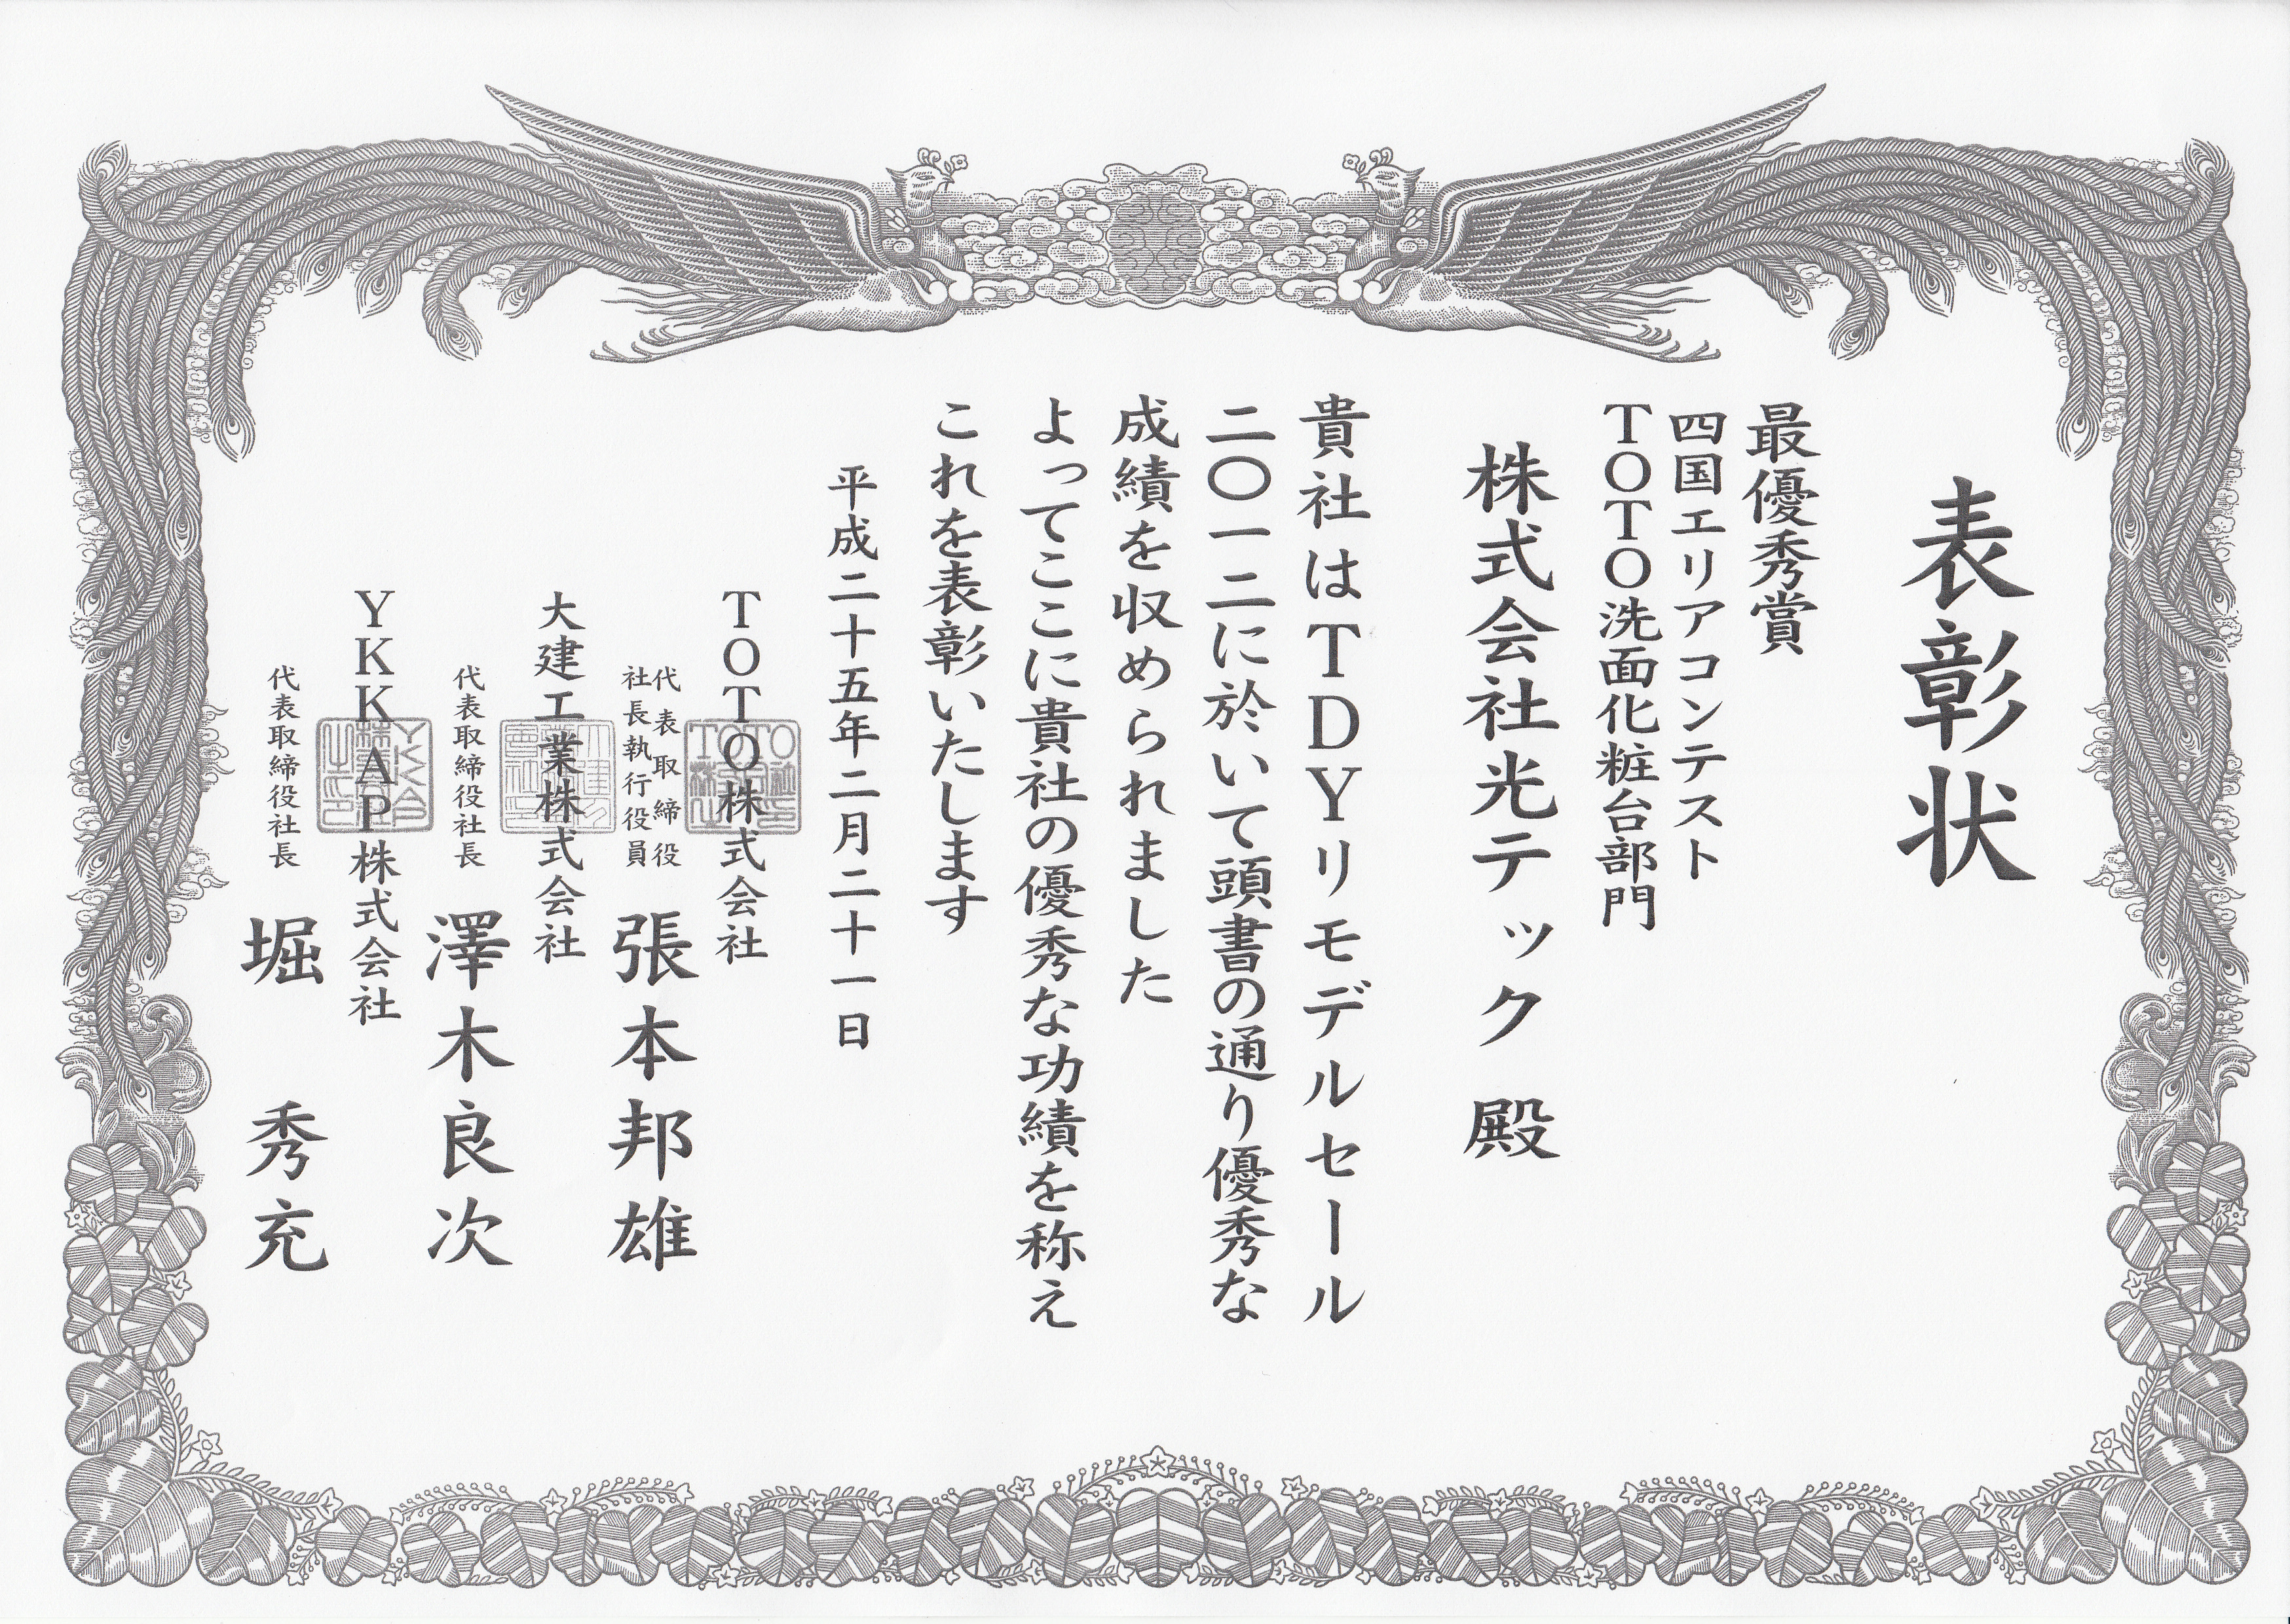 表彰状
最優秀賞
四国エリアコンテスト
TOTO洗面化粧台部門
株式会社光テック 殿
貴社はTDYリモデルセール
二〇一二に於いて頭書の通り優秀な
成績を収められました
よってここに貴社の優秀な功績を称え
これを表彰いたします
平成二十五年二月二十一日
TOTO株式会社
代表取締役
社長執行役員
張本邦雄
大建工業株式会社
代表取締役社長
澤木良次
YKK AP株式会社
代表取締役社長
堀 秀充